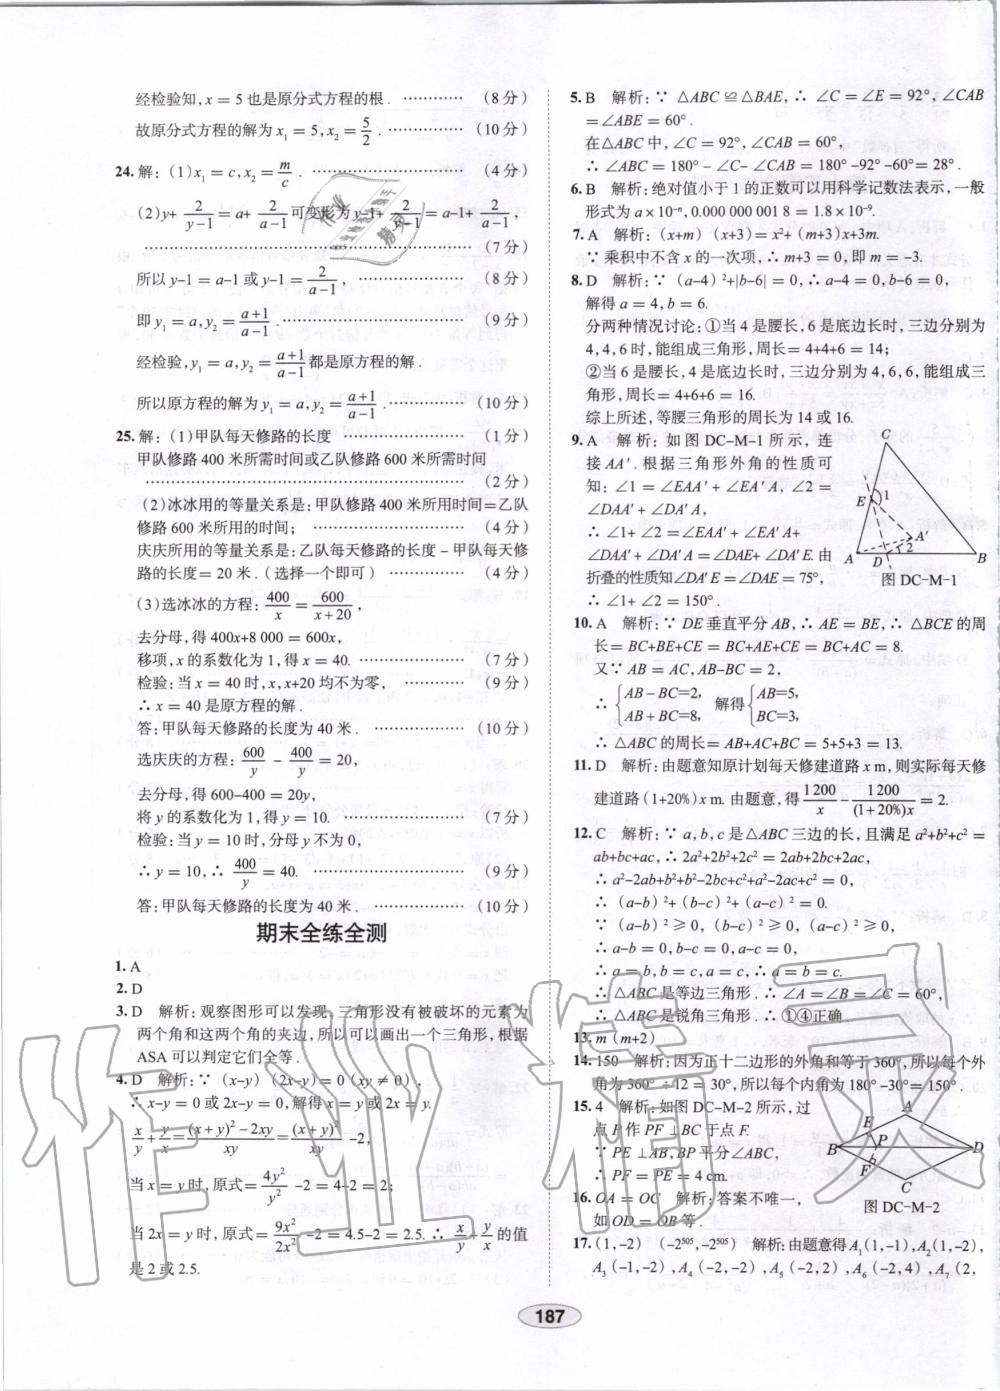 经检验知,x=5也是原分式方程的根. ………… (8分)
故原分式方程的解为x₁=5,x₂=5/2. ………… (10分)
24.解:(1)x₁=c,x₂=m/c. ………… (4分)
(2)y+2/(y-1)=a+2/(a-1)可变形为y-1+2/(y-1)=a-1+2/(a-1),
………… (7分)
所以y-1=a-1或y-1=2/(a-1),
即y₁=a,y₂=(a+1)/(a-1). ………… (9分)
经检验,y₁=a,y₂=(a+1)/(a-1)都是原方程的解.
所以原方程的解为y₁=a,y₂=(a+1)/(a-1). ………… (10分)
25.解:(1)甲队每天修路的长度 ………… (1分)
甲队修路400米所需时间或乙队修路600米所需时间
………… (2分)
(2)冰冰用的等量关系是:甲队修路400米所用时间=乙队
修路600米所用的时间; ………… (4分)
庆庆所用的等量关系是:乙队每天修路的长度-甲队每天修
路的长度=20米.(选择一个即可) ………… (4分)
(3)选冰冰的方程:400/x=600/(x+20),
去分母,得400x+8 000=600x,
移项,x的系数化为1,得x=40. ………… (7分)
检验:当x=40时,x,x+20均不为零, ………… (9分)
∴x=40是原方程的解.
答:甲队每天修路的长度为40米. ………… (10分)
选庆庆的方程:600/y-400/y=20,
去分母,得600-400=20y,
将y的系数化为1,得y=10. ………… (7分)
检验:当y=10时,分母y不为0,
∴y=10,∴400/y=40. ………… (9分)
答:甲队每天修路的长度为40米. ………… (10分)
期末全练全测
1.A
2.D
3.D 解析:观察图形可以发现,三角形没有被破坏的元素为
两个角和这两个角的夹边,所以可以画出一个三角形,根据
ASA可以判定它们全等.
4.D 解析:∵(x-y)(2x-y)=0(xy≠0),
∴x-y=0或2x-y=0,解得x=y或2x=y.
x/y+y/x=((x+y)²-2xy)/xy=(x+y)²/xy-2,
当x=y时,原式=4y²/y²-2=4-2=2;
当2x=y时,原式=9x²/2x²-2=4.5-2=2.5.∴x/y+y/x的值
是2或2.5.
5.B 解析:∵△ABC≌△BAE,∴∠C=∠E=92°,∠CAB
=∠ABE=60°.
在△ABC中,∠C=92°,∠CAB=60°,
∴∠ABC=180°-∠C-∠CAB=180°-92°-60°=28°.
6.B 解析:绝对值小于1的正数可以用科学记数法表示,一般
形式为a×10⁻ⁿ,0.000 000 001 8=1.8×10⁻⁹.
7.A 解析:(x+m)(x+3)=x²+(m+3)x+3m.
∵乘积中不含x的一次项,∴m+3=0,即m=-3.
8.D 解析:∵(a-4)²+|b-6|=0,∴a-4=0,b-6=0,
解得a=4,b=6.
分两种情况讨论:①当4是腰长,6是底边长时,三边分别为
4,4,6时,能组成三角形,周长=4+4+6=14;
②当6是腰长,4是底边长时,三边分别为4,6,6,能组成三
角形,周长=4+6+6=16.
综上所述,等腰三角形的周长为14或16.
9.A 解析:如图DC-M-1所示,连
接AA′.根据三角形外角的性质可
知:∠1=∠EAA′+∠EA′A,∠2=
∠DAA′+∠DA′A,
∴∠1+∠2=∠EAA′+∠EA′A+
∠DAA′+∠DA′A=∠DAE+∠DA′E.由
折叠的性质知∠DA′E=∠DAE=75°,
∴∠1+∠2=150°.
C
E
1
A′
2
A
D
B
图DC-M-1
10.A 解析:∵DE垂直平分AB,∴AE=BE,∴△BCE的周
长=BC+BE+CE=BC+AE+CE=BC+AC=8.
又∵AB=AC,AB-BC=2,
∴{AB-BC=2, AB+BC=8, 解得{AB=5, BC=3,
∴△ABC的周长=AB+AC+BC=5+5+3=13.
11.D 解析:由题意知原计划每天修建道路x m,则实际每天修
建道路(1+20%)x m.由题意,得1200/x-1200/((1+20%)x)=2.
12.C 解析:∵a,b,c是△ABC三边的长,且满足a²+b²+c²=
ab+bc+ac,∴2a²+2b²+2c²=2ab+2bc+2ac,
∴a²-2ab+b²+b²-2bc+c²+a²-2ac+c²=0,
∴(a-b)²+(b-c)²+(a-c)²=0.
∵(a-b)²≥0,(b-c)²≥0,(a-c)²≥0,
∴a-b=0,b-c=0,a-c=0,
∴a=b,b=c,a=c,∴a=b=c.
∴△ABC是等边三角形.∴∠A=∠B=∠C=60°,
∴△ABC是锐角三角形.∴①④正确.
13.m(m+2)
14.150 解析:因为正十二边形的外角和等于360°,所以每个外
角为360°÷12=30°,所以每个内角为180°-30°=150°.
15.4 解析:如图DC-M-2所示,过
点P作PF⊥BC于点F.
∵PE⊥AB,BP平分∠ABC,
∴PF=PE=4 cm.
A
E
P
B
D
F
C
图DC-M-2
16.OA=OC 解析:答案不唯一,
如OD=OB等.
17.(1,-2) (-2⁵⁰⁵,-2⁵⁰⁵) 解析:由题意得A₁(1,-1),A₂(1,-2),
A₃(-1,-2),A₄(-2,-2),A₅(-2,2),A₆(-2,4),A₇(2,
187
作业精灵